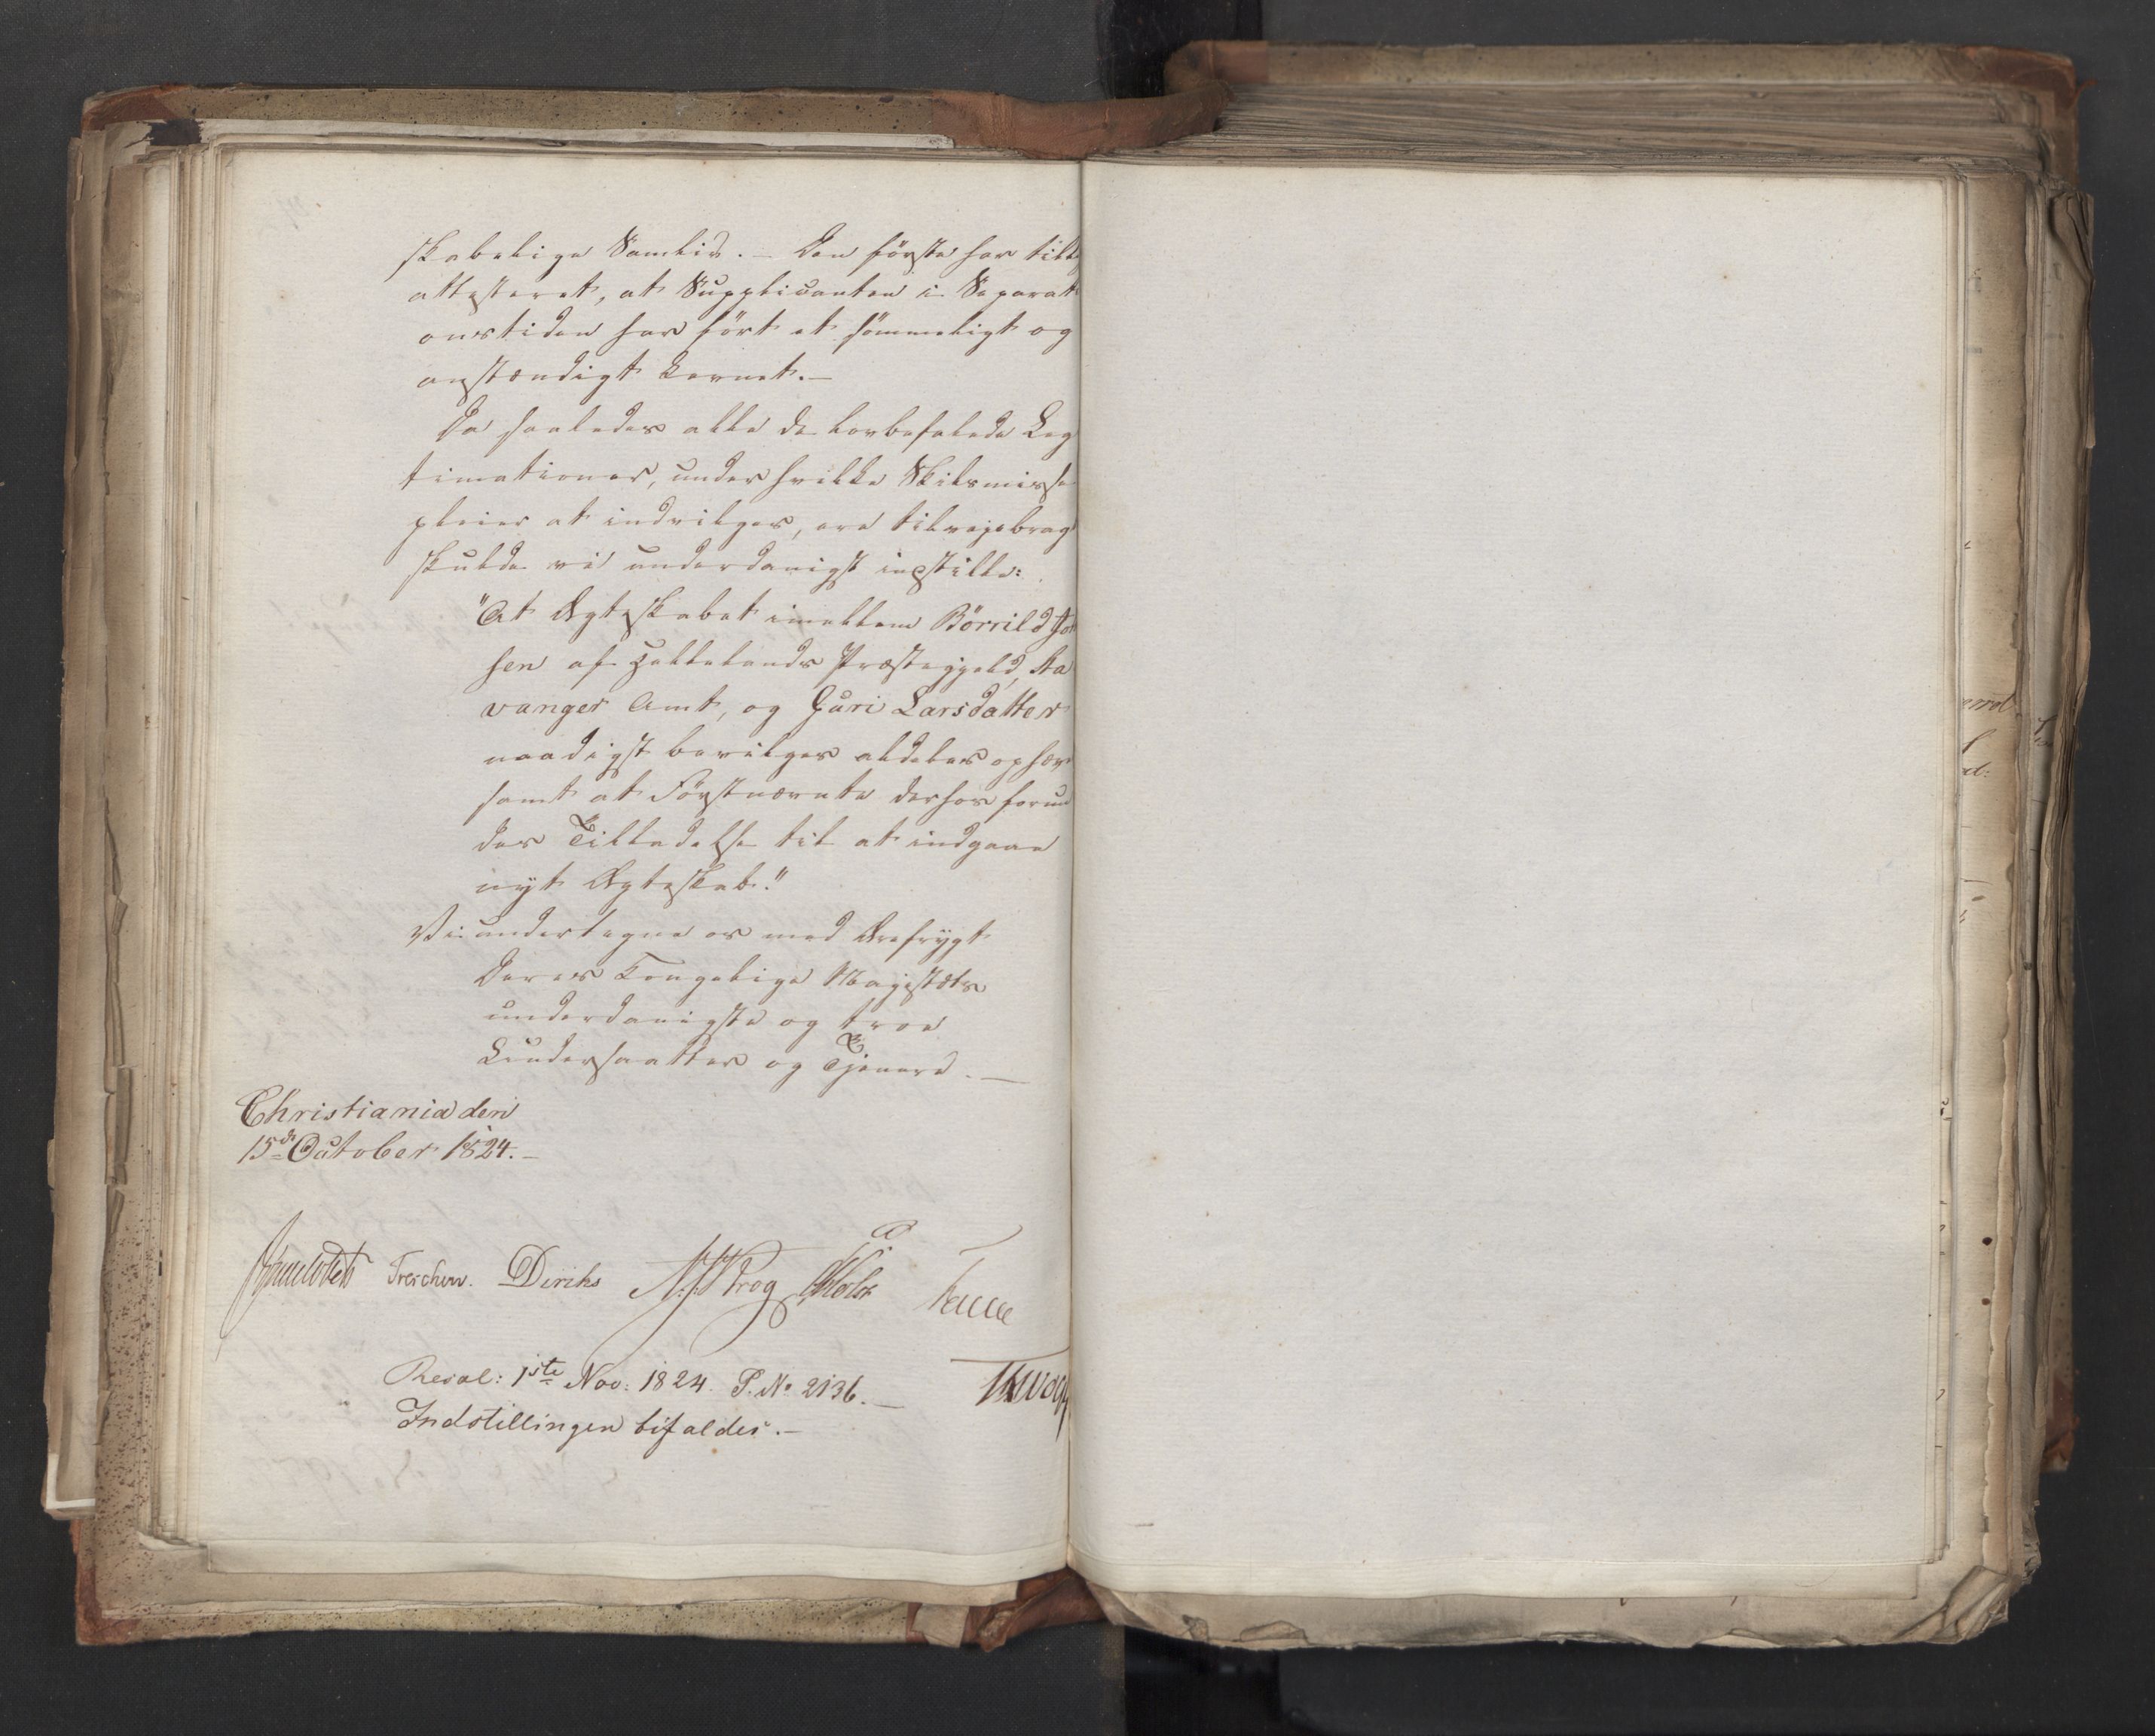 skabelige Samliv. – Den første har till
attesteret, at Supplicanten i Separati
onstiden har ført et sømmeligt og
anstændigt Levnet. –
Da saaledes alle de lovbefalede Leg
timationer, under hvilke Skilsmisse
pleier at indvilges, ere tilvejebragt
skulde vi underdanigst indstille:
"At Ægteskabet imellem Börrild Jo
sen af Hællelands Præstegjeld, Sta
vanger Amt, og Guri Larsdatter
naadigst bevilges aldeles ophæv
samt at Førstnævnte derhos forun
des Tilladelse til at indgaae
nyt Ægteskab."
Vi undertegne os med Ærefrygt
Deres Kongelige Majestæts
underdanigste og troe
Undersaatter og Tjenere. –
Christiania den
15de October 1824. –
Treschow. Diriks Krog
Resol: 1ste Nov: 1824. P. No 2136. –
Indstillingen bifaldes. –